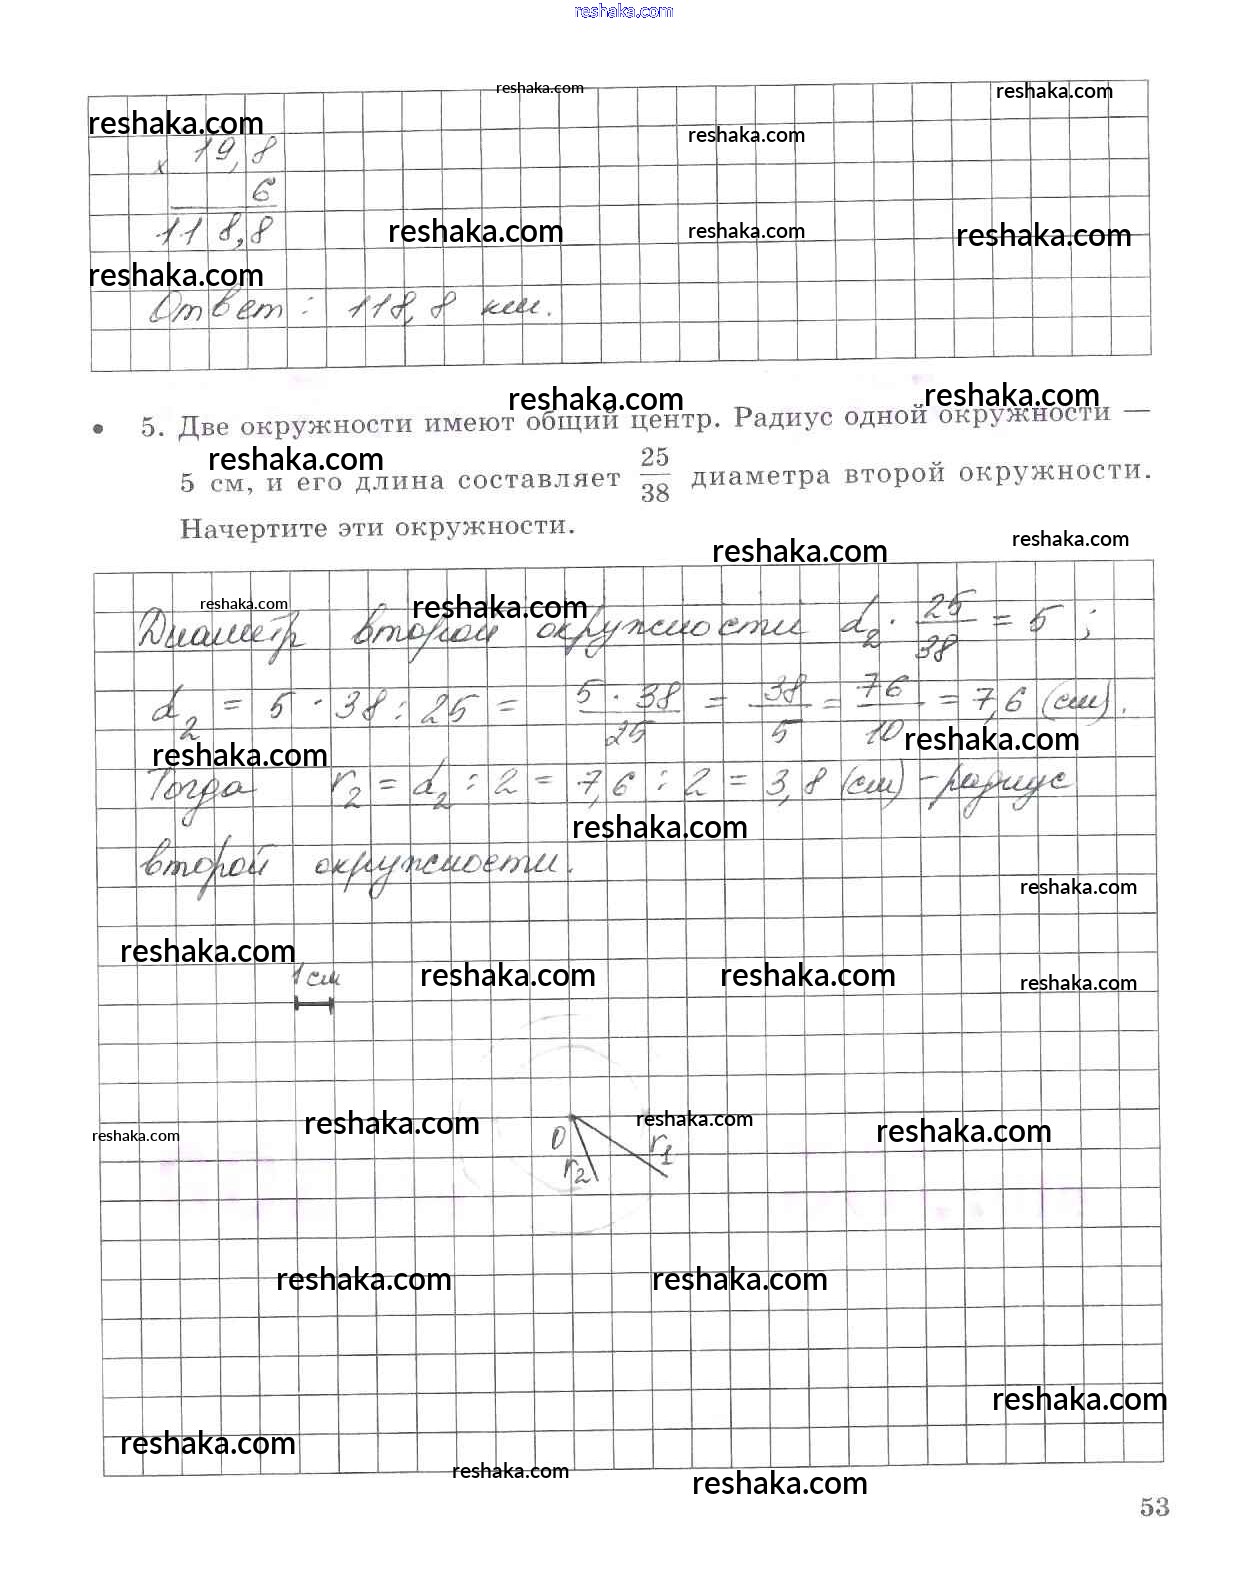 reshaka.com
reshaka.com
reshaka.com
reshaka.com
reshaka.com
× 19,8
6
118,8
reshaka.com
reshaka.com
reshaka.com
reshaka.com
Ответ: 118,8 км.
reshaka.com
reshaka.com
• 5. Две окружности имеют общий центр. Радиус одной окружности —
reshaka.com
5 см, и его длина составляет 25/38 диаметра второй окружности.
Начертите эти окружности.
reshaka.com
reshaka.com
reshaka.com
reshaka.com
Диаметр второй окружности d₂ · 25/38 = 5;
d₂ = 5 · 38 : 25 = 5 · 38/25 = 38/5 = 76/10 = 7,6 (см).
reshaka.com
reshaka.com
Тогда r₂ = d₂ : 2 = 7,6 : 2 = 3,8 (см) – радиус
reshaka.com
второй окружности.
reshaka.com
reshaka.com
1 см
reshaka.com
reshaka.com
reshaka.com
reshaka.com
reshaka.com
reshaka.com
reshaka.com
O
r₁
r₂
reshaka.com
reshaka.com
reshaka.com
reshaka.com
reshaka.com
reshaka.com
53